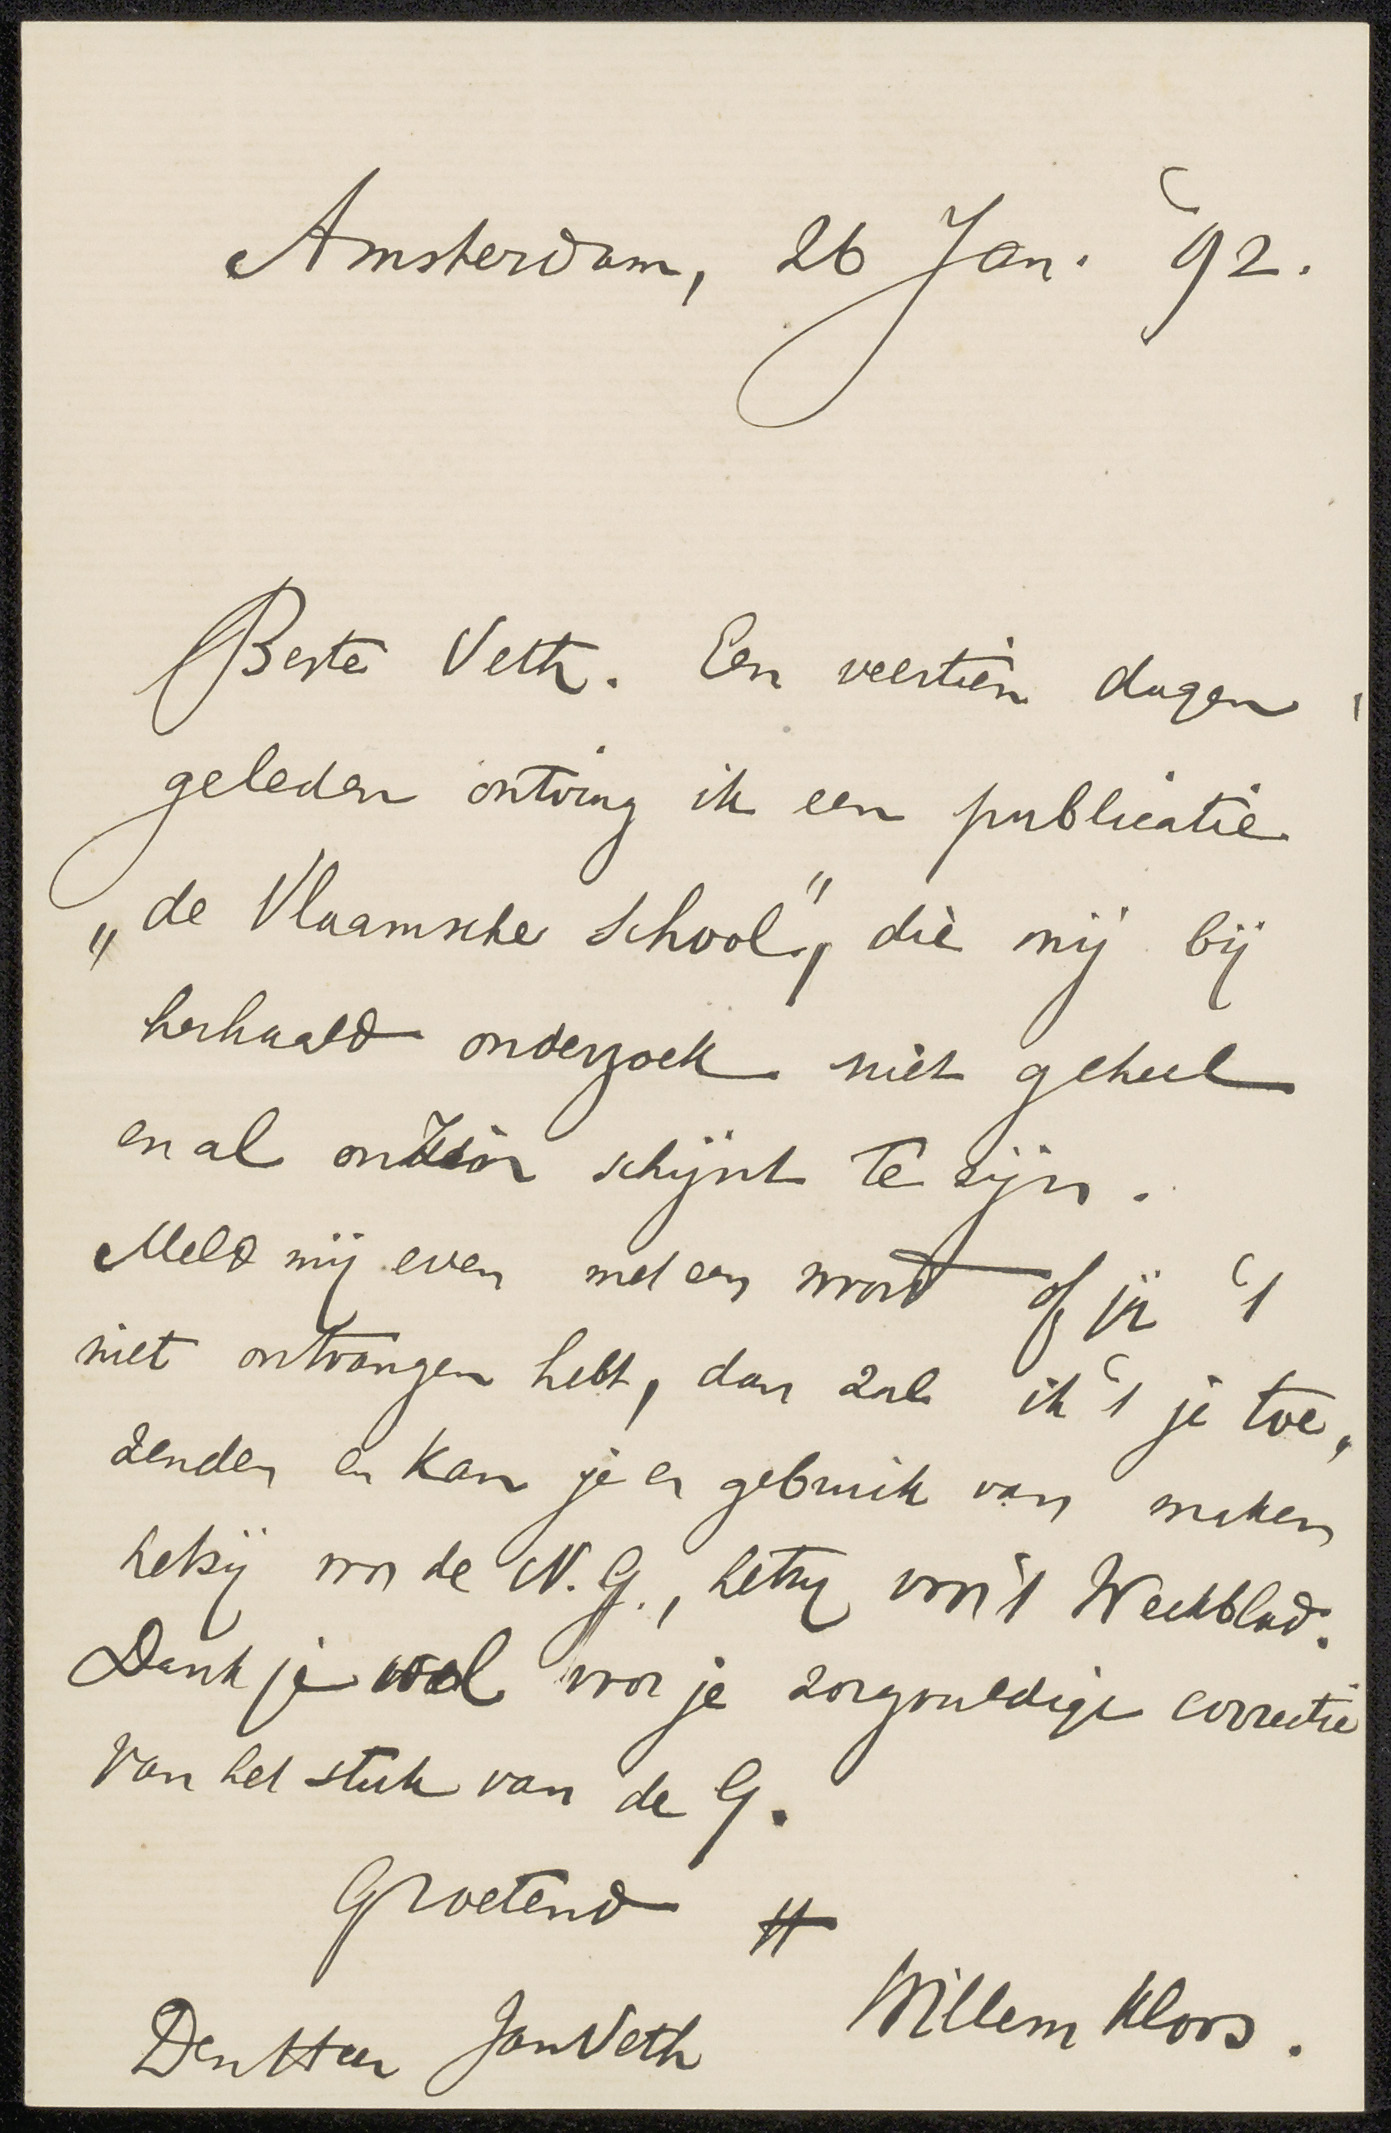 Amsterdam, 26 Jan. '92.
Beste Veth. Een veertien dagen
geleden ontving ik een publicatie
„de Vlaamsche School", die mij bij
herhaald onderzoek niet geheel
en al onzin schijnt te zijn.
Meld mij even met een woord of je 't
niet ontvangen hebt, dan zal ik 't je toe„
zenden en kan je er gebruik van maken
hetzij voor de N. G., hetzij voor 't Weekblad.
Dank je wel voor je zorgvuldige correctie
van het stuk van de G.
Groetend
Willem Kloos.
Den Heer Jan Veth